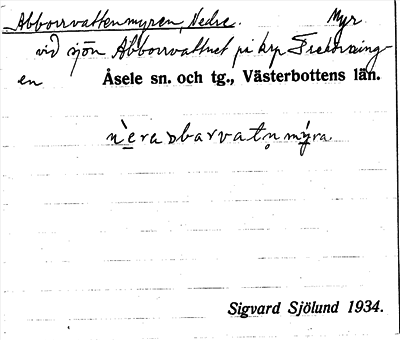 Abborrvattenmyren, Nedre. Myr
vid sjön Abborrvattnet på krp Fredriksning-
en Åsele sn. och tg., Västerbottens län.
nèra abarvatn̥ mýra
Sigvard Sjölund 1934.